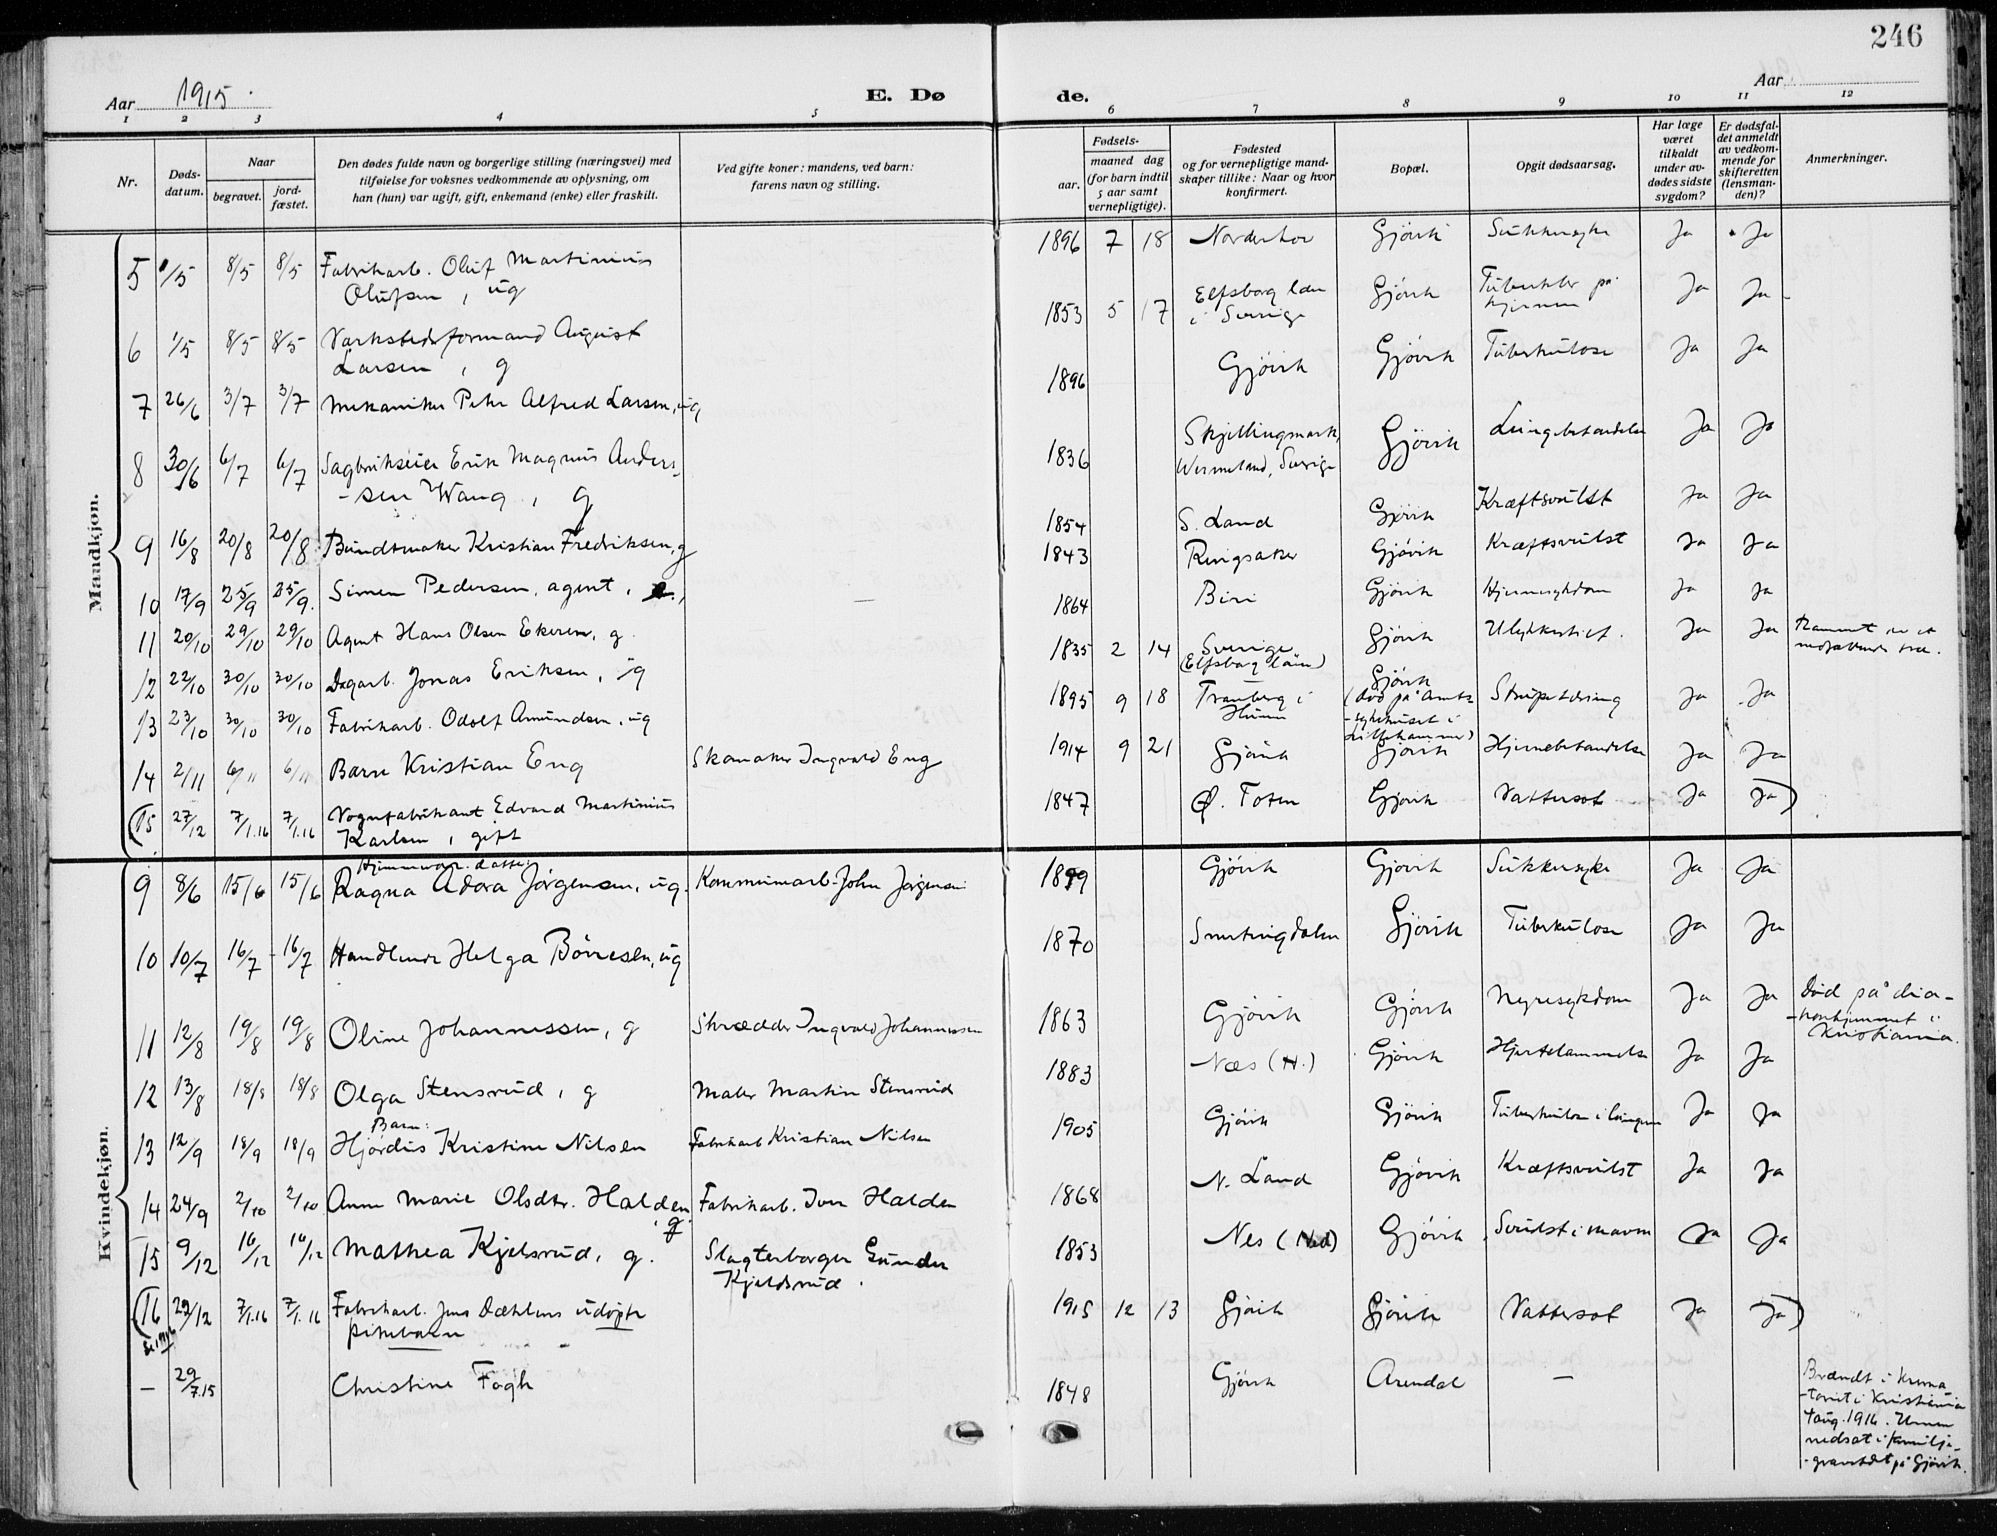 246
Aar 1915.
E. Dø de.
Aar
1 2 3 4 5 6 7 8 9 10 11 12
Nr.
Døds-
datum.
Naar
begravet.
jord-
fæstet.
Den dødes fulde navn og borgerlige stilling (næringsvei) med
tilføielse for voksnes vedkommende av oplysning, om
han (hun) var ugift, gift, enkemand (enke) eller fraskilt.
Ved gifte koner: mandens, ved barn:
farens navn og stilling.
Fødsels-
aar.
maaned dag
(for barn indtil
5 aar samt
vernepligtige).
Fødested
og for vernepligtige mand-
skaper tillike: Naar og hvor
konfirmert.
Bopæl.
Opgit dødsaarsag.
Har læge
været
tilkaldt
under av-
dødes sidste
sygdom?
Er dødsfal-
det anmeldt
av vedkom-
mende for
skifteretten
(lensman-
den)?
Anmerkninger.
Mandkjøn.
5 1/5 8/5 8/5 Fabrikarb. Oluf Martinius
Olufsen, ug
1896 7 18 Norderhov Gjövik Sukkersyke Ja Ja
6 1/5 8/5 8/5 Værkstedsformand August
Larsen, g
1853 5 17 Elfsborg län
i Sverige
Gjövik Tuberkler på
hjernen
Ja Ja
7 26/6 3/7 3/7 Mekaniker Peter Alfred Larsen, ug
1896 Gjövik Gjövik Tuberkulose Ja Ja
8 30/6 6/7 6/7 Sagbrukseier Erik Magnus Anders-
-sen Wang, g
1836 Skjillingmark,
Wermeland, Sverige
Gjövik Lungebetændelse Ja Ja
9 16/8 20/8 20/8 Buntmaker Kristian Fredriksen, g
1854 S. Land Gjövik Kræftsvulst Ja Ja
10 17/9 25/9 25/9. Simen Pedersen, agent,
1843 Ringsaker Gjövik Kræftsvulst Ja Ja
11 20/10 29/10 29/10 Agent Hans Olsen Ekeren, g.
1864 Biri Gjövik Hjernesykdom Ja Ja
12 22/10 30/10 30/10 Dagarb. Jonas Eriksen, g
1835 2 14 Sverige
(Elfsborg län)
Gjövik Ulykkestilf. Ja Ja
Rammet av et
nedfaldende træ.
13 23/10 30/10 30/10 Fabrikarb. Odolf Amundsen, ug
1895 9 18 Tranberg i
Hunn
Gjövik
(död på Amts-
-sykehuset i
Lillehammer)
Strupetæring Ja Ja
14 2/11 6/11 6/11 Barn Kristian Eng
Skomaker Ingvald Eng
1914 9 21 Gjövik Gjövik Hjernebetændelse Ja Ja
(15 27/12 7/1.16 7/1.16 Vognfabrikant Edvard Martinius
Karlsen, gift
1847 Ø. Toten Gjövik Vattersot Ja Ja)
Kvindekjøn.
9 8/6 15/6 15/6 Hjemmevær. datter:
Ragna Adora Jörgensen, ug.
Kommunearb. John Jörgensen
1899 Gjövik Gjövik Sukkersyke Ja Ja
10 10/7 16/7 16/7 Handlende Helga Börresen, ug
1870 Snertingdalen Gjövik Tuberkulose Ja Ja
11 12/8 19/8 19/8 Oline Johannessen, g
Skrædder Ingvald Johannessen
1863 Gjövik Gjövik Nyresykdom Ja Ja
Död på dia-
-konhjemmet i
Kristiania.
12 13/8 18/8 18/8 Olga Stensrud, g
Maler Martin Stensrud
1883 Næs (H.) Gjövik Hjertelammelse Ja Ja
13 12/9 18/9 18/9 Barn:
Hjördis Kristine Nilsen
Fabrikarb Kristian Nilsen
1905 Gjövik Gjövik Tuberkulose i lungene Ja Ja
14 24/9 2/10 2/10 Anne Marie Olsdtr. Halden
g.
Fabrikarb. Iver Halden
1868 N. Land Gjövik Kræftsvulst Ja Ja
15 9/12 16/12 16/12 Mathea Kjelsrud, g.
Slagterborger Gunder
Kjeldsrud.
1853 Nes (Hed) Gjövik Svulst i maven Ja Ja
(16 29/12 7/1.16 7/1.16 Fabrikarb. Jens Dæhlens udöpte
pikebarn
Se 1916
1915 12 13 Gjövik Gjövik Vattersot Ja Ja)
— 29/7.15 Christine Fogh
1848 Gjövik Arendal —
Brændt i krema-
-toriet i Kristiania
4 aug. 1916. Urnen
nedsat i familje-
-gravstedet på Gjövik.